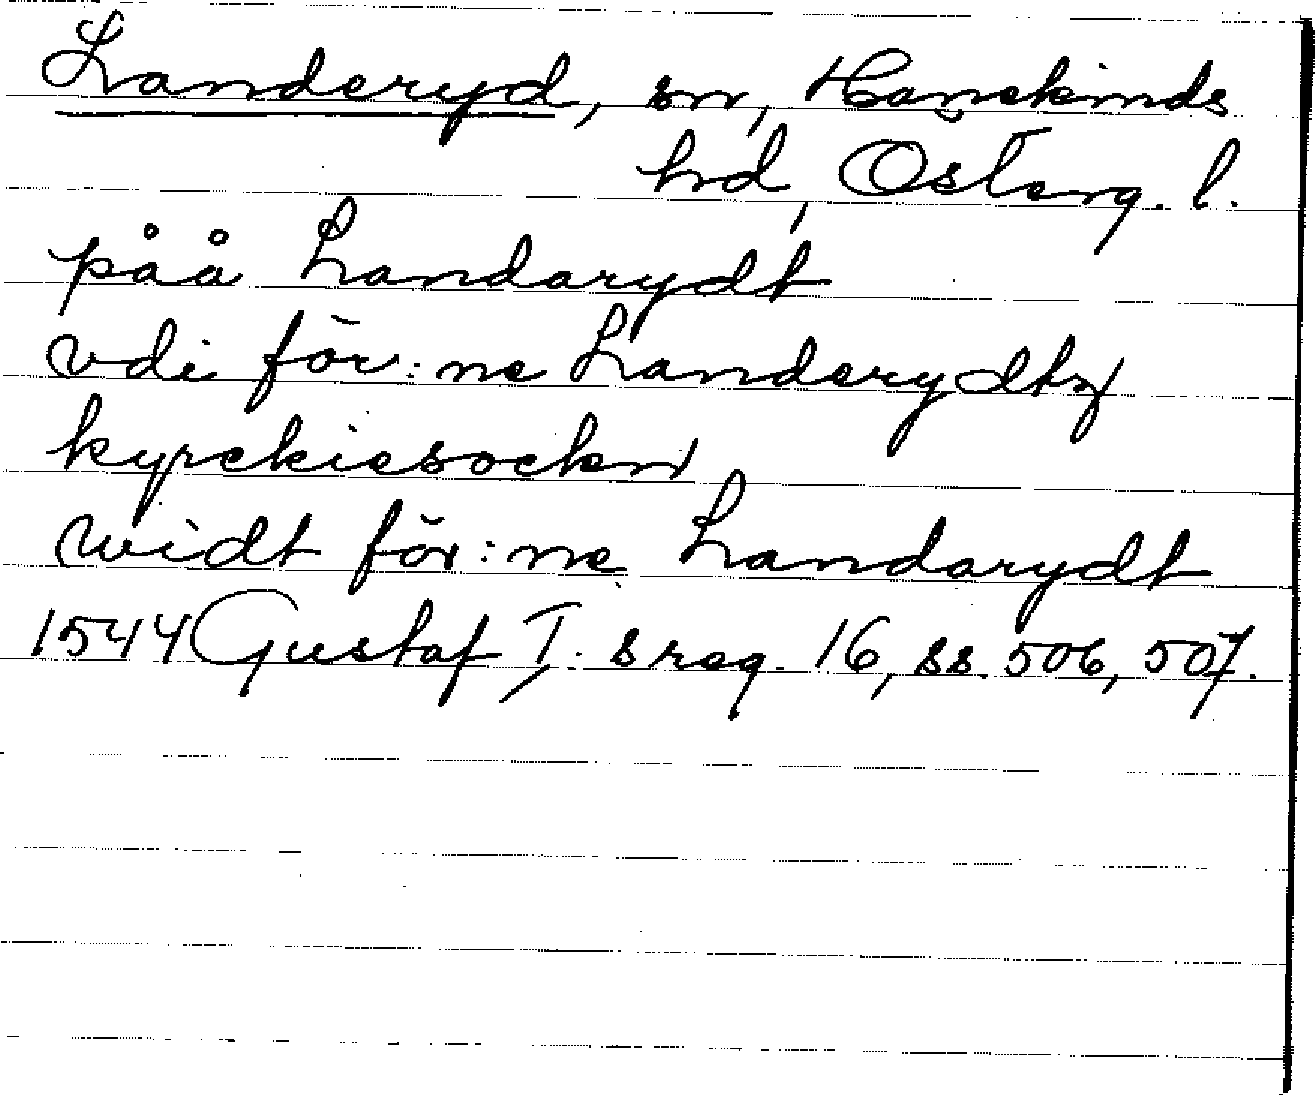 Landeryd, sn, Hanekinds
hd, Österg. l.
påå Landarydt
vdi för:ne Landerydtz
kyrckiesockn
widt för:ne Landarydt
1544 Gustaf I. s reg. 16, ss. 506, 507.